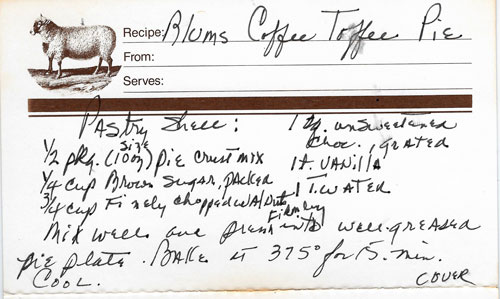 Recipe: Blums Coffee Toffee Pie
From:
Serves:
Pastry Shell:
1/2 pkg. (10 oz size) pie crust mix
1/4 cup Brown Sugar, packed
3/4 cup Finely chopped walnuts
1 sq. unsweetened
choc., grated
1 t. vanilla
1 T. water
Mix well and press firmly into well-greased
pie plate. Bake at 375° for 15 min.
Cool.
cover